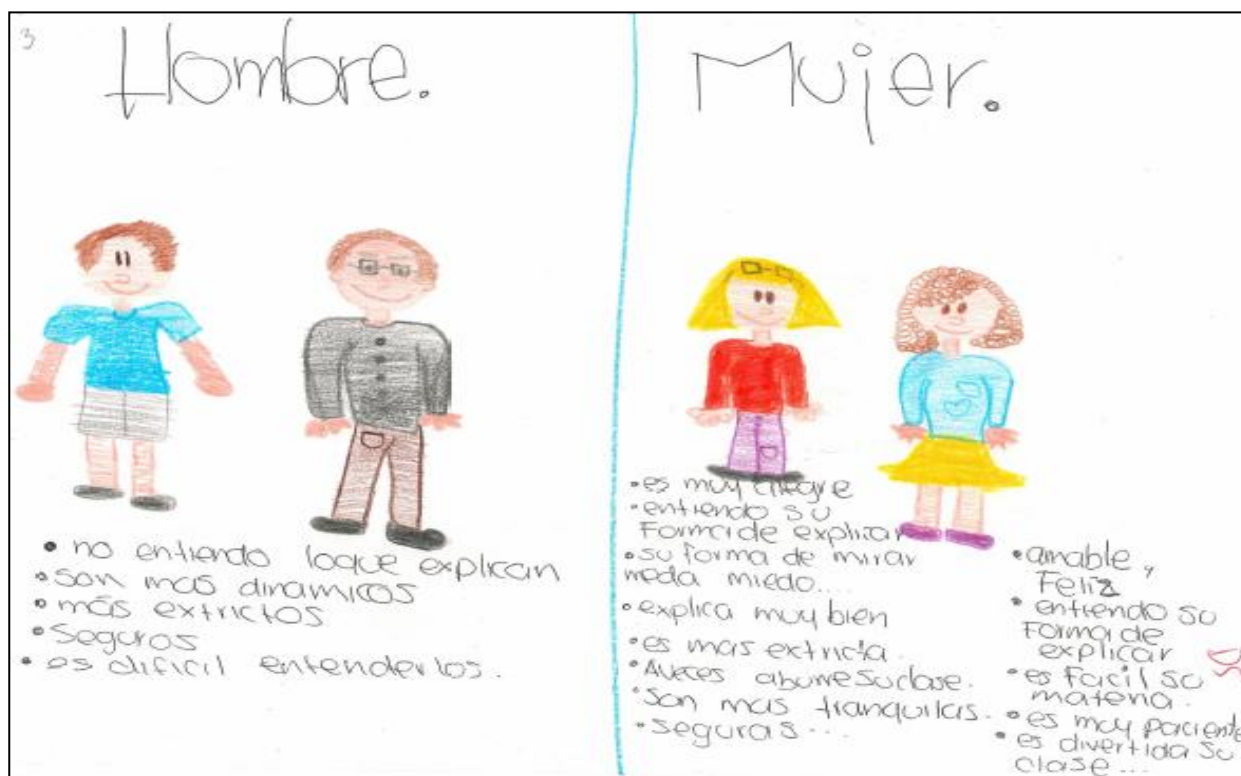 3
Hombre.
• no entiendo loque explican
• son mas dinamicos
• más extrictos
• Seguros
• es dificil entenderlos.
Mujer.
• es muy alegre
• entiendo su
Forma de explicar
• su forma de mirar
meda miedo....
• explica muy bien
• es mas extricta.
• Aveces aburre suclase.
• son mas tranquilas.
• seguras...
• amable y
Feliz
• entiendo su
Forma de
explicar
• es Facil su
materia.
• es muy paciente
• es divertida su
clase...